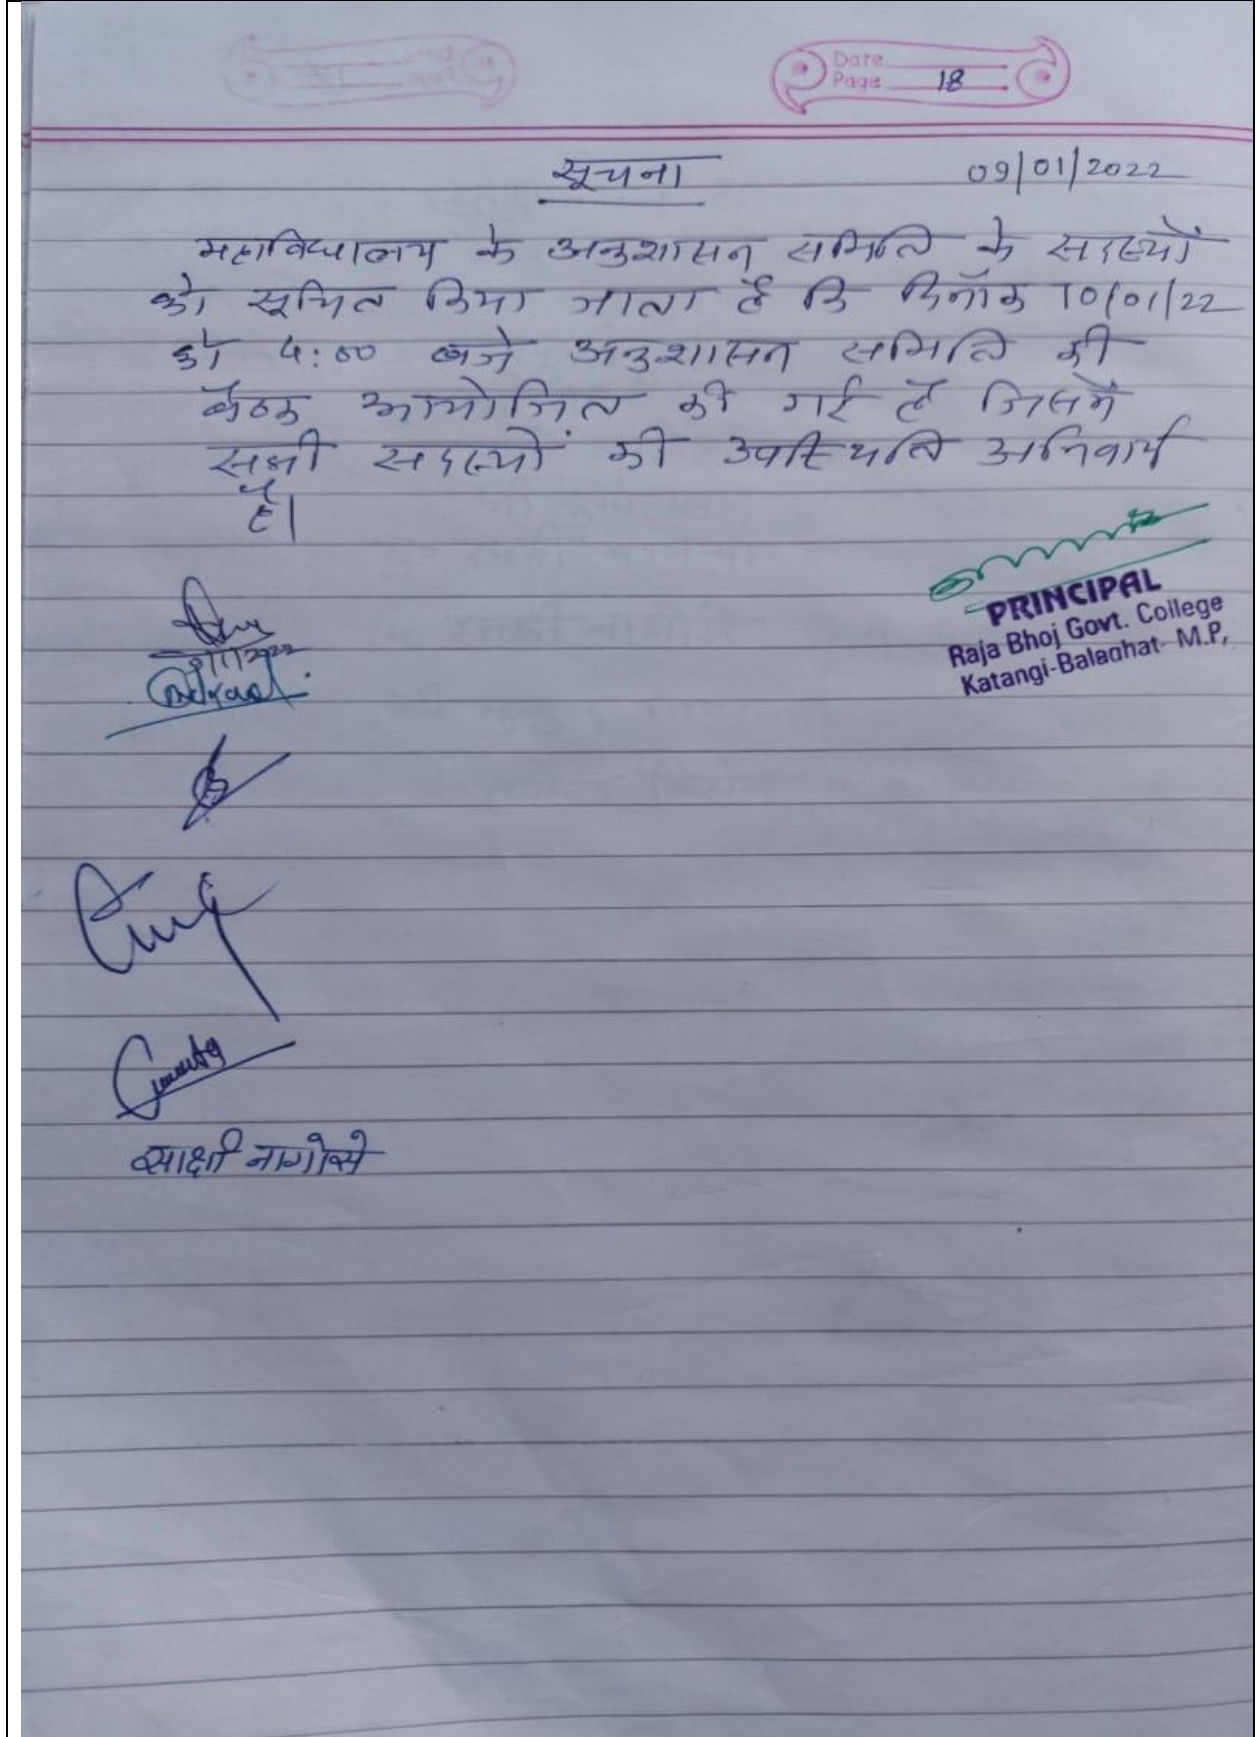 Date
Page 18
सूचना 09/01/2022
महाविद्यालय के अनुशासन समिति के सदस्यों
को सूचित किया जाता है कि दिनाँक 10/01/22
को 4:00 बजे अनुशासन समिति की
बैठक आयोजित की गई है जिसमें
सभी सदस्यों की उपस्थिति अनिवार्य
है।
PRINCIPAL
Raja Bhoj Govt. College
Katangi-Balaghat- M.P.
साक्षी नागोसे